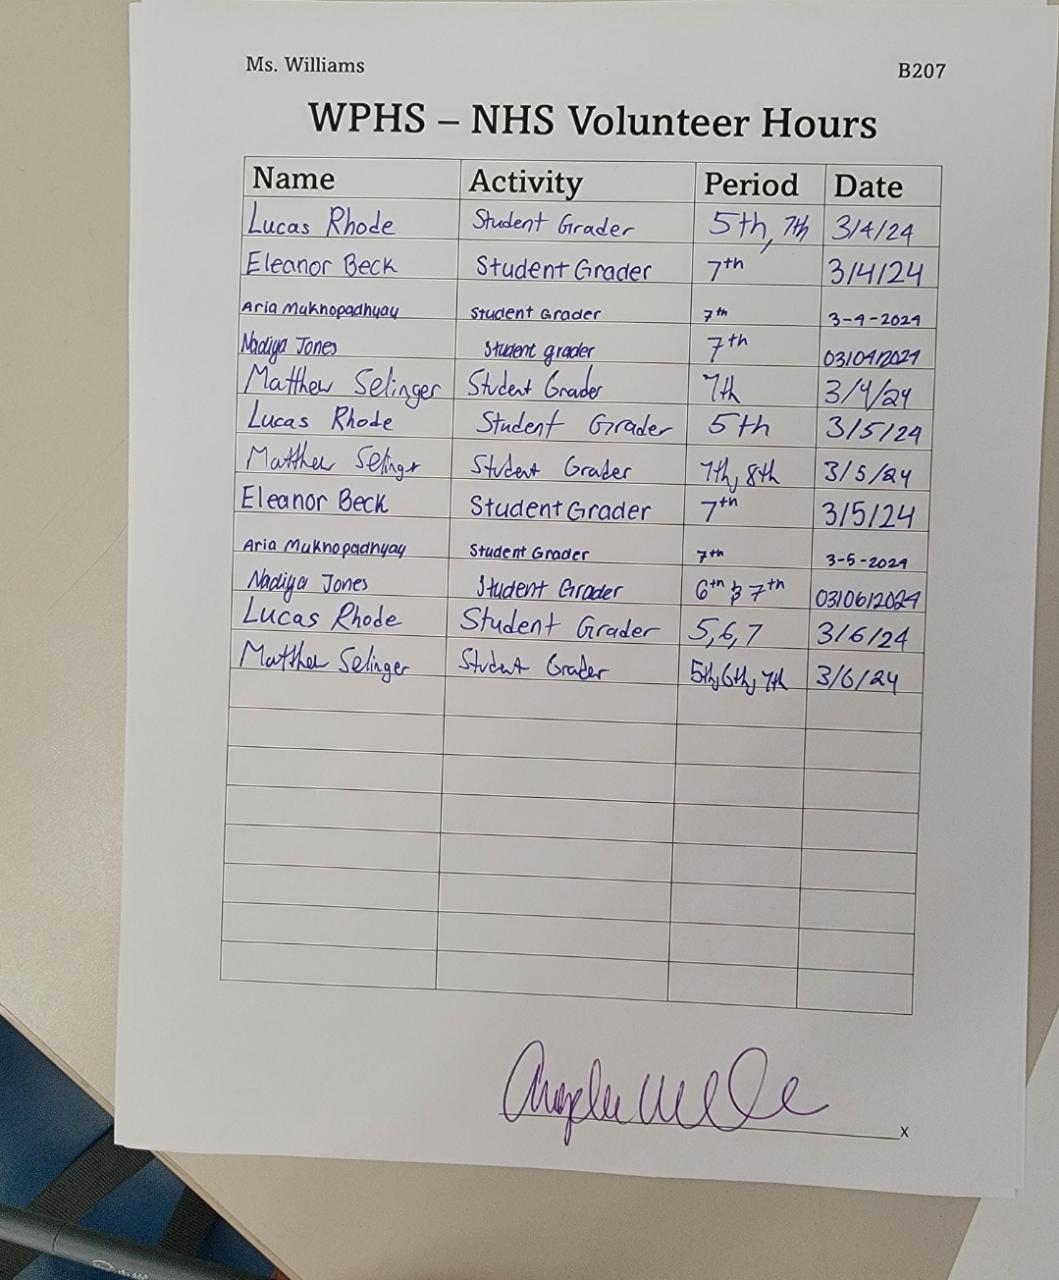 Ms. Williams B207
WPHS – NHS Volunteer Hours
Name Activity Period Date
Lucas Rhode Student Grader 5th, 7th 3/4/24
Eleanor Beck Student Grader 7th 3/4/24
Aria Mukhopadhyay Student Grader 7th 3-4-2024
Nadiya Jones Student grader 7th 03/04/2024
Matthew Selinger Student Grader 7th 3/4/24
Lucas Rhode Student Grader 5th 3/5/24
Matthew Selinger Student Grader 7th, 8th 3/5/24
Eleanor Beck Student Grader 7th 3/5/24
Aria Mukhopadhyay Student Grader 7th 3-5-2024
Nadiya Jones Student Grader 6th & 7th 03/06/2024
Lucas Rhode Student Grader 5,6,7 3/6/24
Matthew Selinger Student Grader 5th, 6th, 7th 3/6/24
x